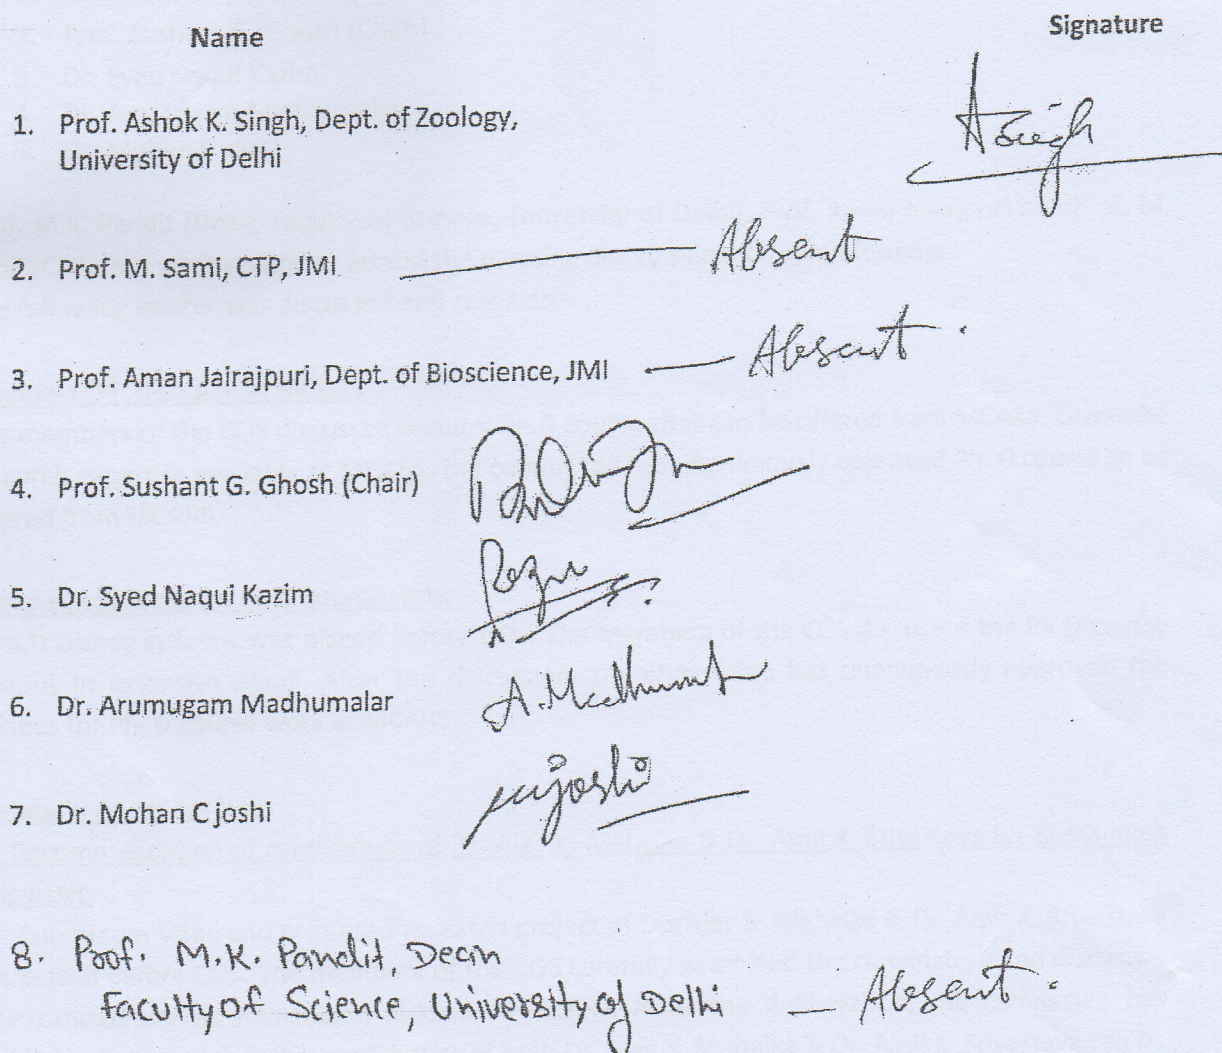 Name Signature
1. Prof. Ashok K. Singh, Dept. of Zoology,
University of Delhi
ASingh
2. Prof. M. Sami, CTP, JMI — Absent
3. Prof. Aman Jairajpuri, Dept. of Bioscience, JMI — Absent.
4. Prof. Sushant G. Ghosh (Chair)
5. Dr. Syed Naqui Kazim
6. Dr. Arumugam Madhumalar A. Madhumalar
7. Dr. Mohan C joshi mcjoshi
8. Prof. M.K. Pandit, Dean
Faculty of Science, University of Delhi — Absent.